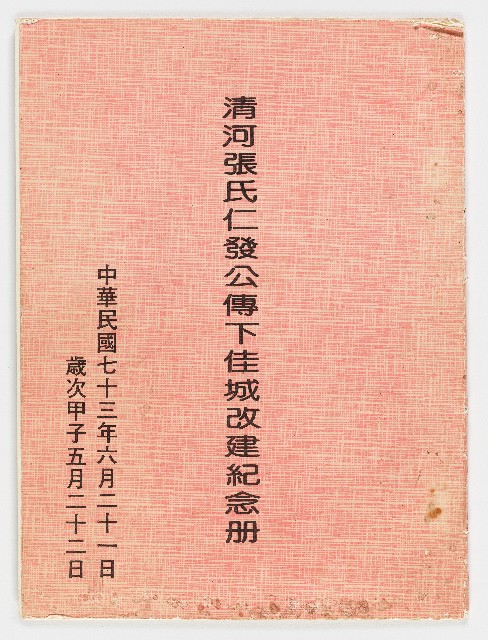 清河張氏仁發公傳下佳城改建紀念册
中華民國七十三年六月二十一日
歲次甲子五月二十二日